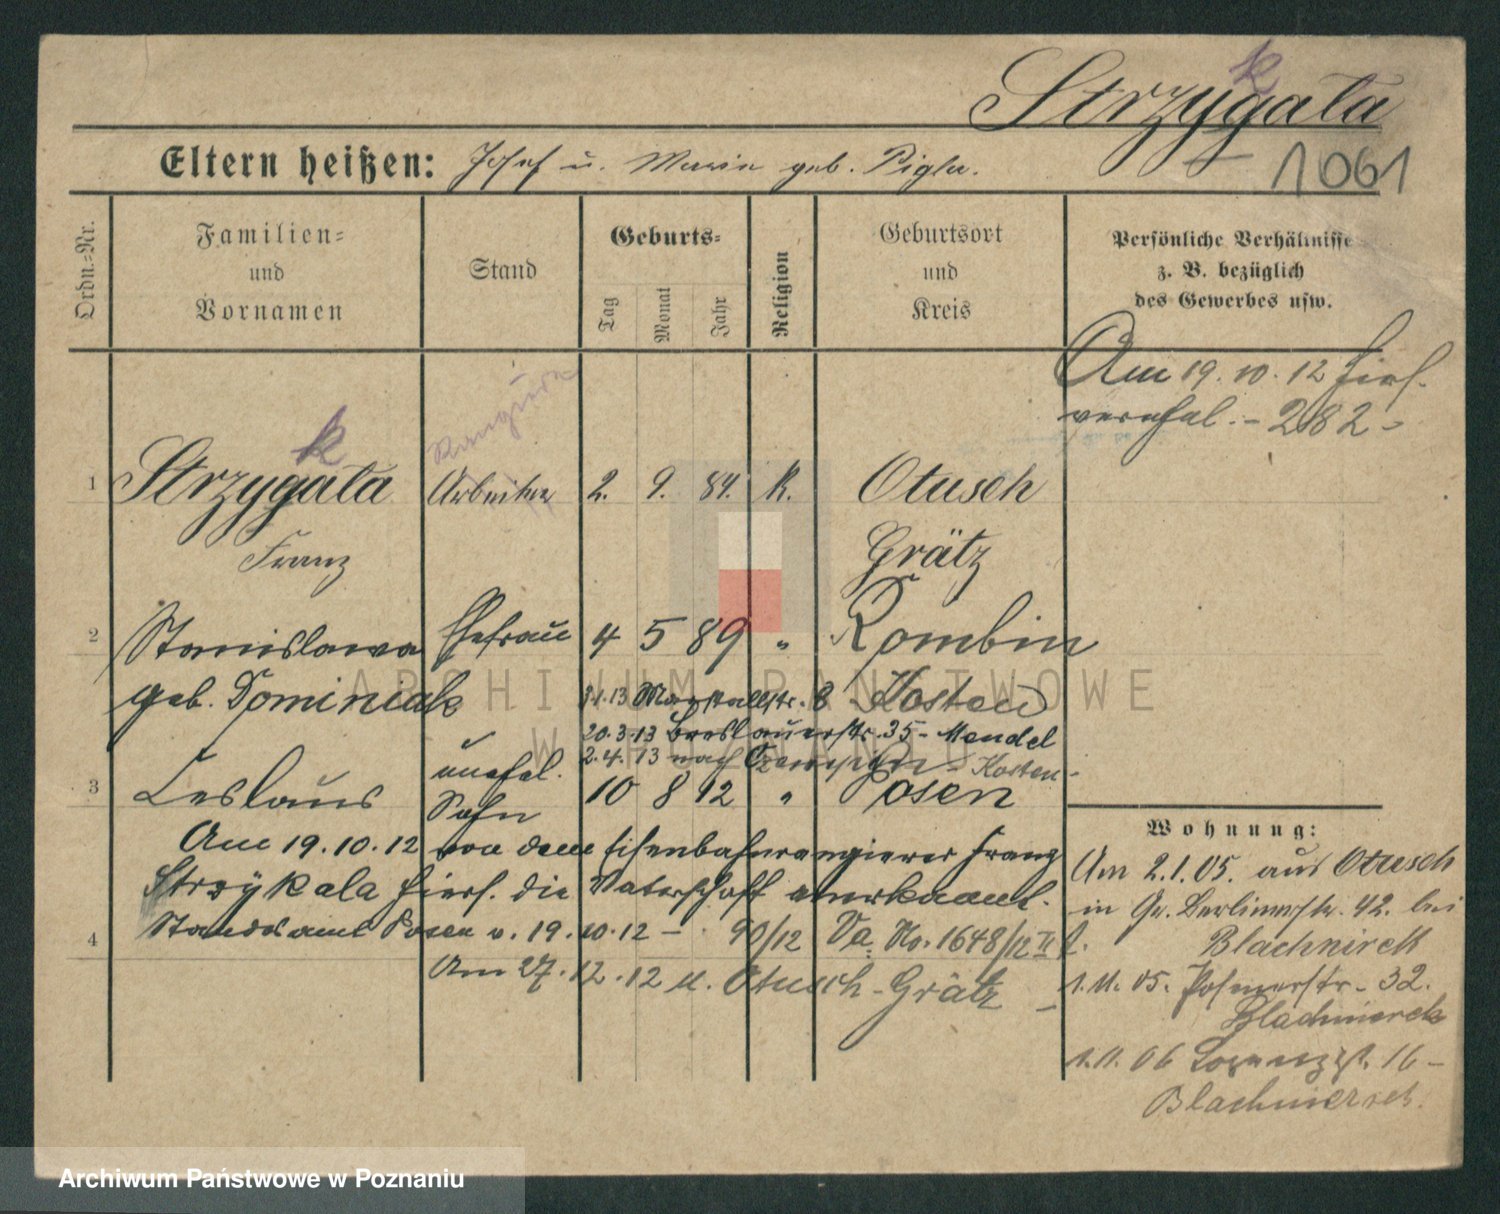 k
Strzygala
Eltern heißen: Josef u. Marie geb. Pigla.
1061
Ordn.-Nr.
Familien-
und
Vornamen
Stand
Geburts-
Tag
Monat
Jahr
Religion
Geburtsort
und
Kreis
Persönliche Verhältnisse
z. B. bezüglich
des Gewerbes usw.
Am 19.10.12 hies.
verehel. - 282 -
k
Rangierer
1 Strzygala Arbeiter 2. 9. 84. K. Otusch
Franz Grätz
2 Stanislawa Ehefrau 4 5 89 " Rombin
geb. Dominiak Kosten
3.1.13 Marstallstr. 8
20.3.13 Breslauerstr. 35 - Mendel
2.4.13 nach Czempin - Kosten -
unehel.
3 Leslaus Sohn 10 8 12 " Posen
Am 19.10.12 von dem Eisenbahnrangierer Franz
Strzykala hiers. die Vaterschaft anerkannt.
Standesamt Posen v. 19.10.12 - 90/12 Va. No. 1648/12 II
4
Am 27.12.12 n. Otusch - Grätz -
Wohnung:
Am 2.1.05. aus Otusch
in Gr. Berlinerstr. 42. bei
Blachnireck
1.11.05. Posenerstr. 32.
Blachnierek
1.11.06 16 -
Blachnierek.
ARCHIWUM PAŃSTWOWE
W POZNANIU
Archiwum Państwowe w Poznaniu